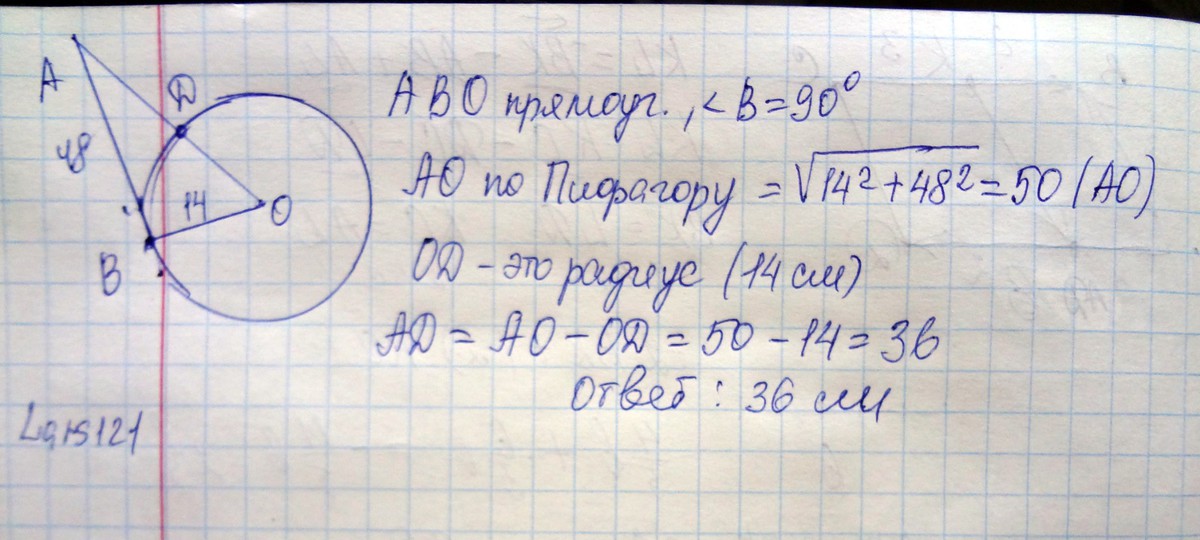 A
D
48
14
O
B
ABO прямоуг., < B = 90°
AO по Пифагору = √14² + 48² = 50 (AO)
OD - это радиус (14 см)
AD = AO - OD = 50 - 14 = 36
Ответ : 36 см
Lars121